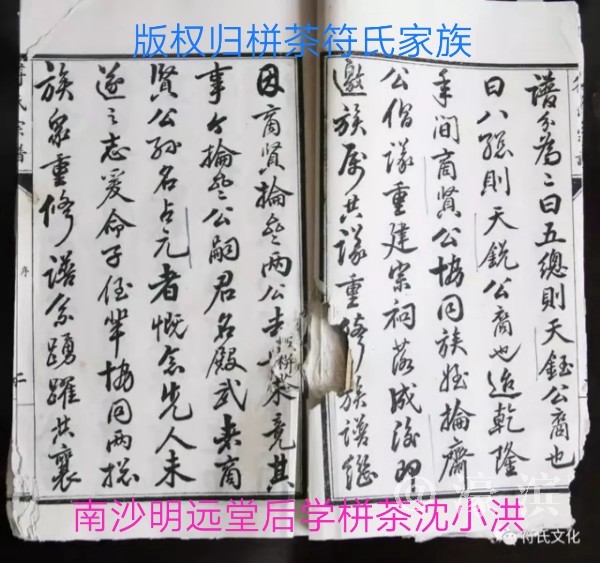 版权归栟茶符氏家族
譜分為二曰五總則天鈺公裔也
曰八總則天銳公裔也迨乾隆
年间商賢公協同族姪掄齋
公偕議重建宗祠落成後即
邀族属共議重修族譜繼
因商賢掄叁兩公去世未竟其
栟茶
事今掄叁公嗣君名殿武来商
賢公孫名占元者慨念先人未
遂之志爰命子侄辈協同两总
族衆重修譜系踴躍共襄
符氏宗譜
序
南沙明远堂后学栟茶沈小洪
濠滨
符氏文化